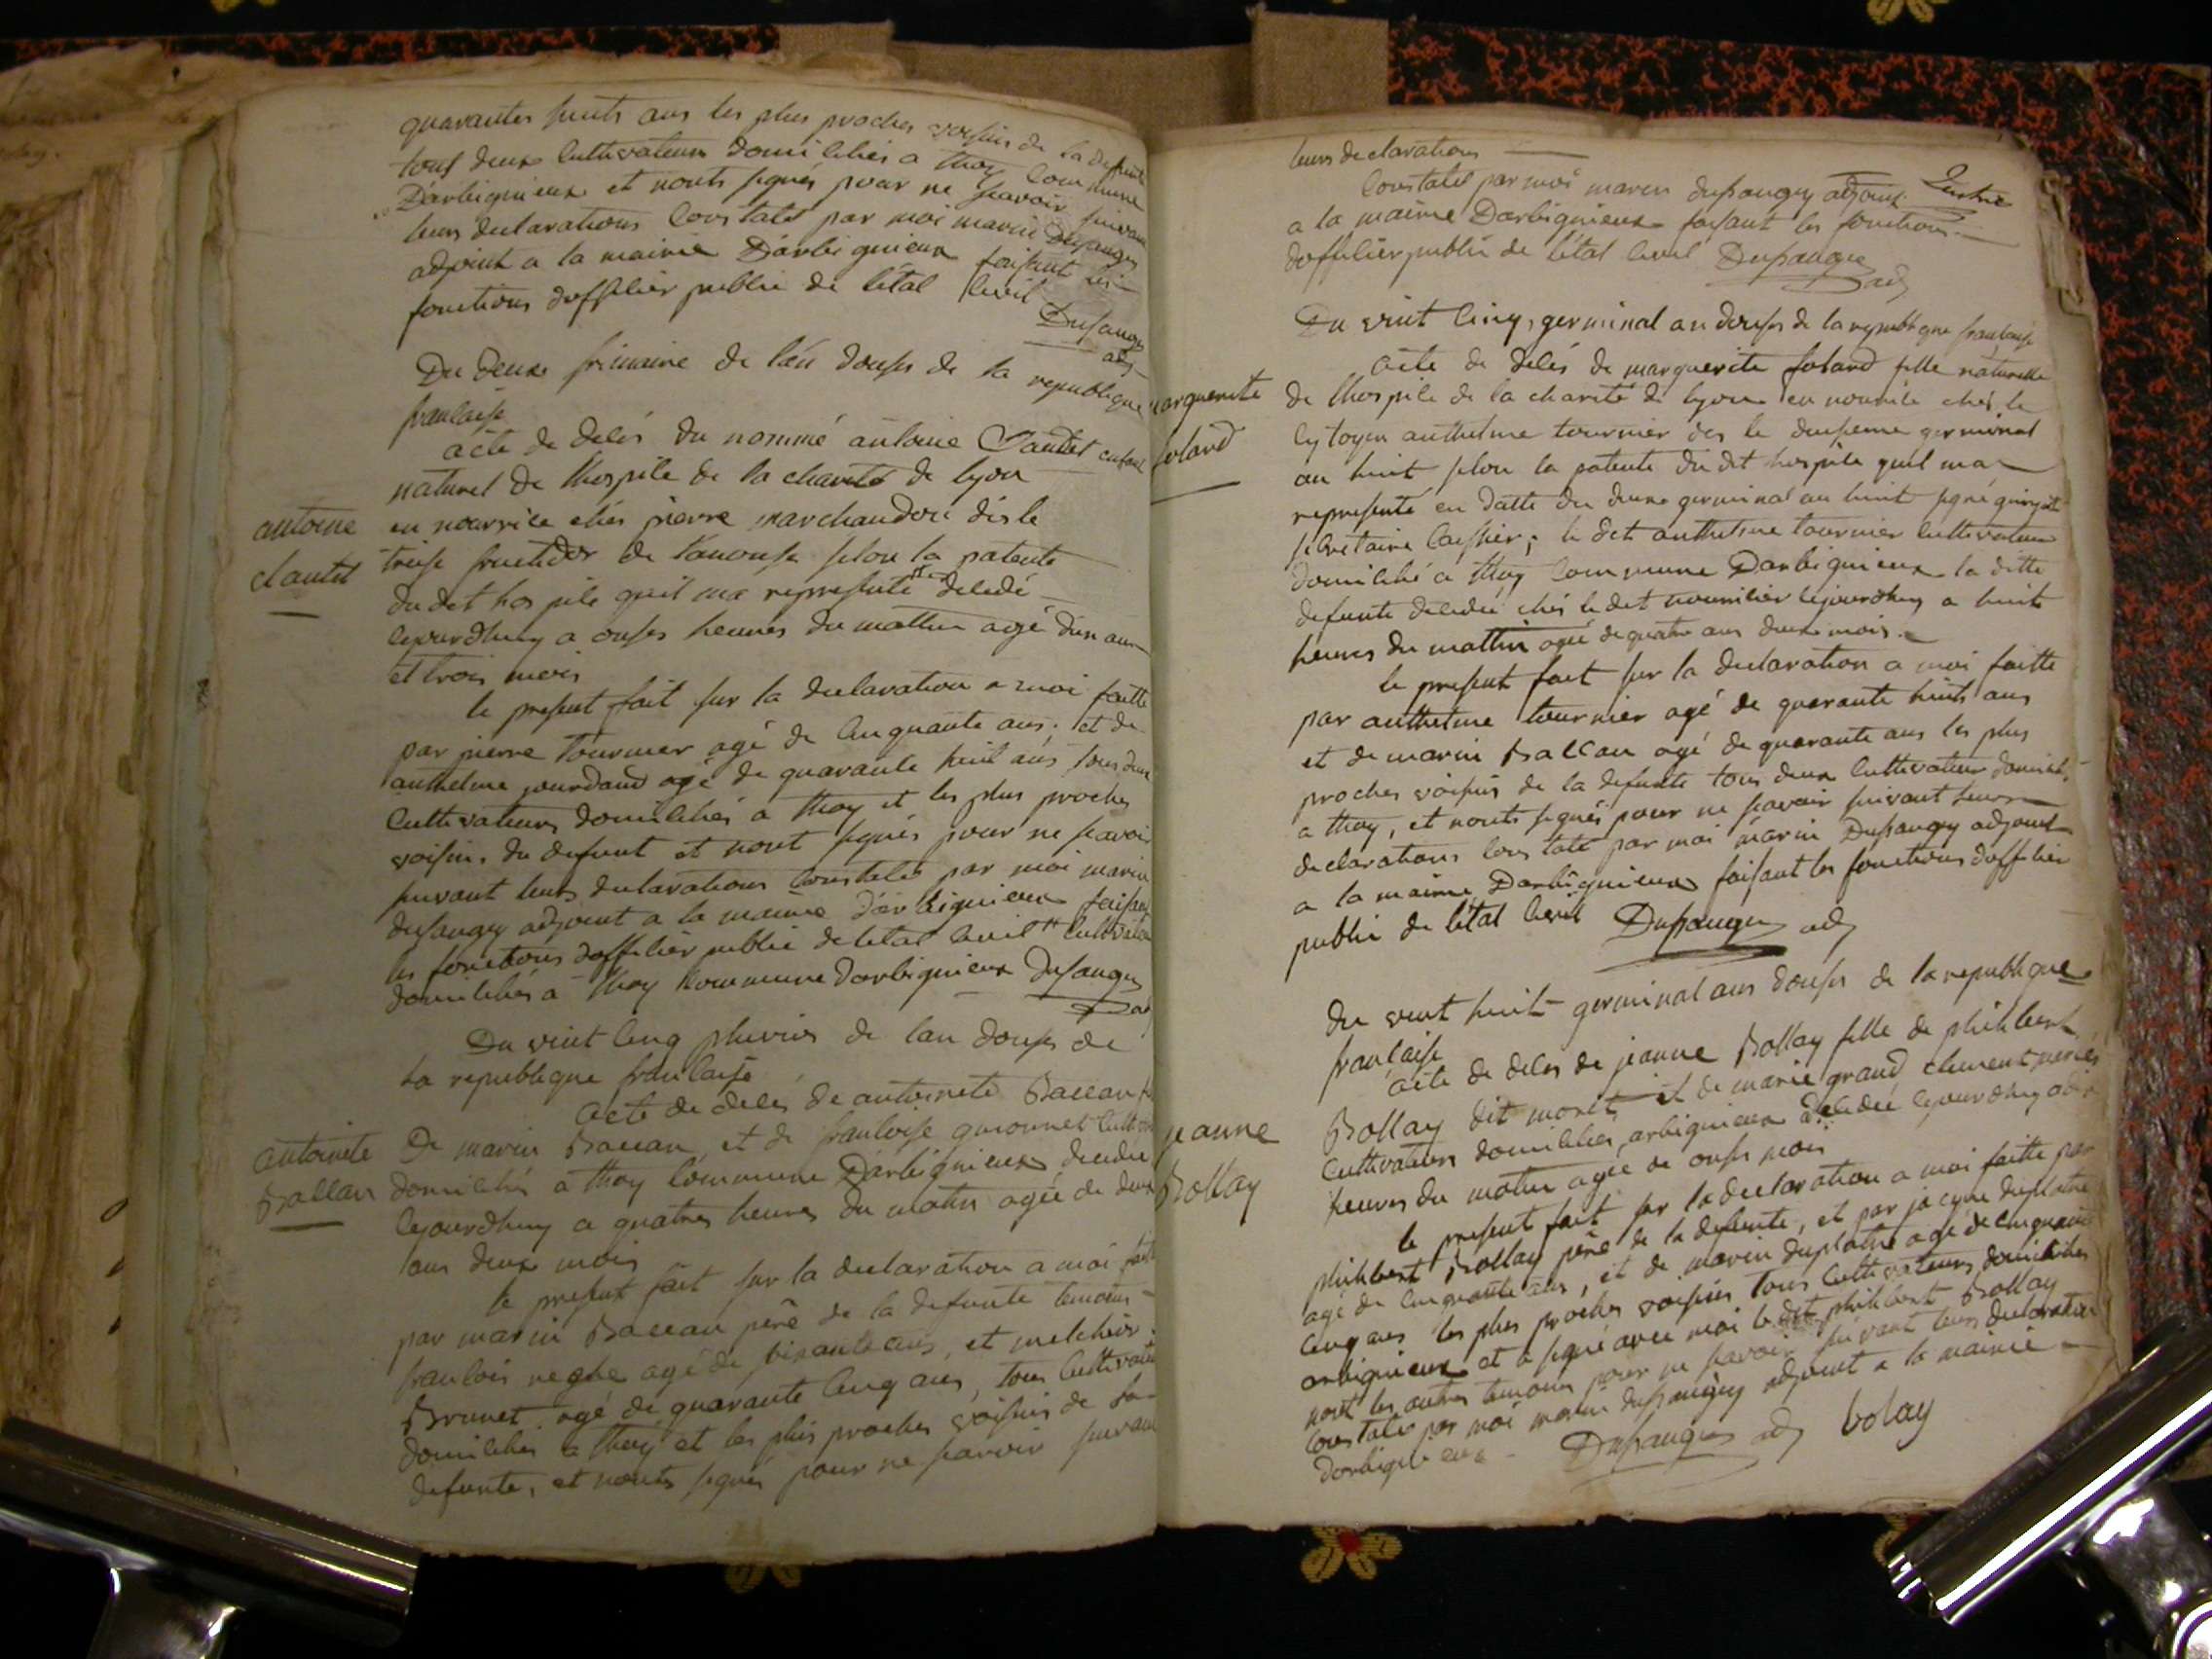 quarantes huits ans les plus proches voisins de la defunte
tous deux Cultivateurs domicilies a thoy Commune
Darbignieux et nonts signés pour ne scavoir suivant
leurs declarations Constaté par moi marin Dupaugey
adjoint a la mairie Darbignieux faisant les
fonctions dofficier public de létat Civil
Dupaugey
adj
Du Deux frimaire de lan douses de la republique
francaise
acte de decés du nommé antoine Clautet enfant
naturel de lhospice de la charité de lyon
antoine
clautet
en nourrice chés pierre marchandou dès le
treise fructidor de lanonse selon la patente
du dit hospice quil ma representé decedé
cejourdhuy a onses heures du mattin agé dun an
et trois mois
le present fait sur la declaration a moi faitte
par pierre tournier agé de Cinquante ans, et de
anthelme jourdand agé de quarante huit ans tous deux
Cultivateurs domiciliés a thoy et les plus proches
voisins du defunt et nont signés pour ne scavoir
suivant leurs declarations Constaté par moi marin
dupaugey adjoint a la mairie darbignieux faisant
les fonctions dofficier public de letat Civil Cultivateurs
domiciliés a thoy Commune darbignieux Dupaugey
adj
Du vint Cinq pluvios de lan douses de
la republique francaise
Acte de decés de antoinete Baccan
antoinete
Baccan
De marin Baccan et de francoise guionnet Cultivateurs
domiciliés a thoy Commune Darbignieux decedée
cejourdhuy a quatres heures du matin agée de deux
ans deux mois
le present fait sur la declaration a moi faite
par marin Baccan père de la defunte temoins
francois negre agé de soixante ans, et melchior
Brunet agé de quarante Cinq ans, tous Cultivateurs
domiciliés a thoy et les plus proches voisins de la
defunte, et nonts signés pour ne scavoir suivant
leurs declarations
Constaté par moi marin dupaugey adjoint
a la mairie Darbignieux faisant les fonctions
dofficier public de létat Civil Dupaugey
adj
Du vint Cinq, germinal an douses de la republique francaise
acte de decés de marguerite foland fille naturelle
marguerite
foland
de lhospice de la charité de lyon en nourrice chés le
Cytoyen anthelme tournier des le deusieme germinal
an huit selon la patente du dit hospice quil ma
representé en datte du deux germinal an huit signé
secretaire Caissier; le dit anthelme tournier Cultivateur
domicilié a thoy Commune Darbignieux la ditte
defunte decedée chés le dit nourricier cejourdhuy a huits
heures du mattin agée de quatre ans deux mois
le present fait sur la declaration a moi faitte
par anthelme tournier agé de quarante huits ans
et de marin Baccan agé de quarante ans les plus
proches voisins de la defunte tous deux Cultivateur domicil.
a thoy, et nonts signés pour ne scavoir suivant leurs
declarations Constaté par moi marin Dupaugey adjoint
a la mairie Darbignieux faisant les fonctions dofficier
public de létat Civil Dupaugey adj
Du vint huit germinal ans douses de la republique
francaise
acte de decés de jeanne Bollay fille de philibert
jeanne
Bollay
Bollay dit monet et de marie grand clement
Cultivateurs domiciliés arbignieux decedée cejourdhuy a dix
heures du matin agée de onses mois
le present fait sur la declaration a moi faitte par
philibert Bollay père de la defunte, et par jacque duplatre
agé de Cinquante ans, et de marin duplatre agé de cinquante
Cinq ans les plus proches voisins tous Cultivateurs domiciliés
arbignieux et a signé avec moi le dit philibert Bollay
nont les autres temoins pour ne scavoir suivant leurs declaration
Constaté par moi marin dupaugey adjoint a la mairie
darbignieux Dupaugey adj bolay